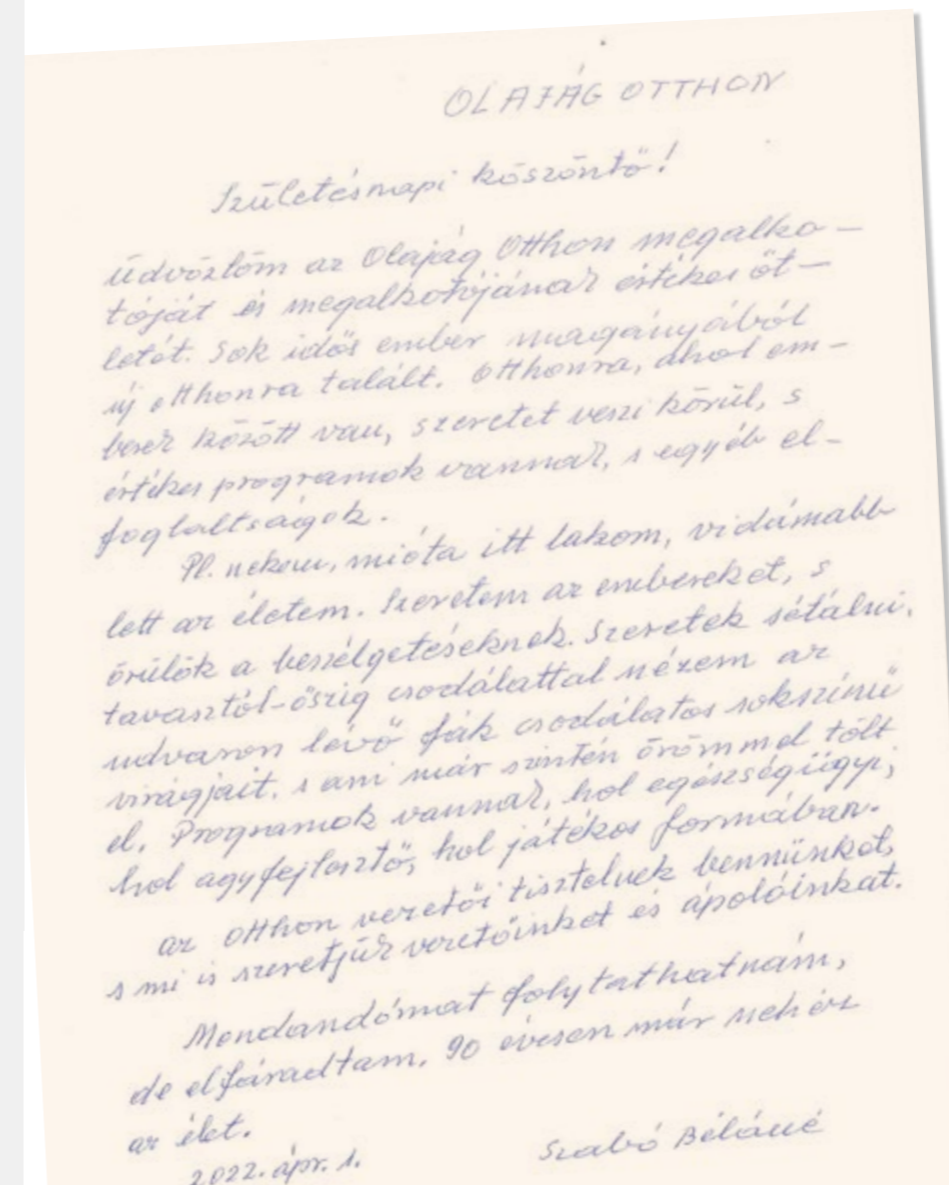 OLAJÁG OTTHON
Születésnapi köszöntő!
Üdvözlöm az Olajág Otthon megalko-
tóját és megalkotójának értékes öt-
letét. Sok idős ember magányából
új otthonra talált. Otthonra, ahol em-
berek között van, szeretet veszi körül, s
értékes programok vannak, s egyéb el-
foglaltságok.
Pl. nekem, mióta itt lakom, vidámabb
lett az életem. Szeretem az embereket, s
örülök a beszélgetéseknek. Szeretek sétálni,
tavasztól-őszig csodálattal nézem az
udvaron lévő fák csodálatos sokszínű
virágjait. s ami már szintén örömmel tölt
el. Programok vannak, hol egészségügyi,
hol agyfejlesztő, hol játékos formában.
az otthon vezetői tisztelnek bennünket,
s mi is szeretjük vezetőinket és ápolóinkat.
Mondandómat folytathatnám,
de elfáradtam. 90 évesen már nehéz
az élet.
2022. ápr. 1.
Szabó Béláné